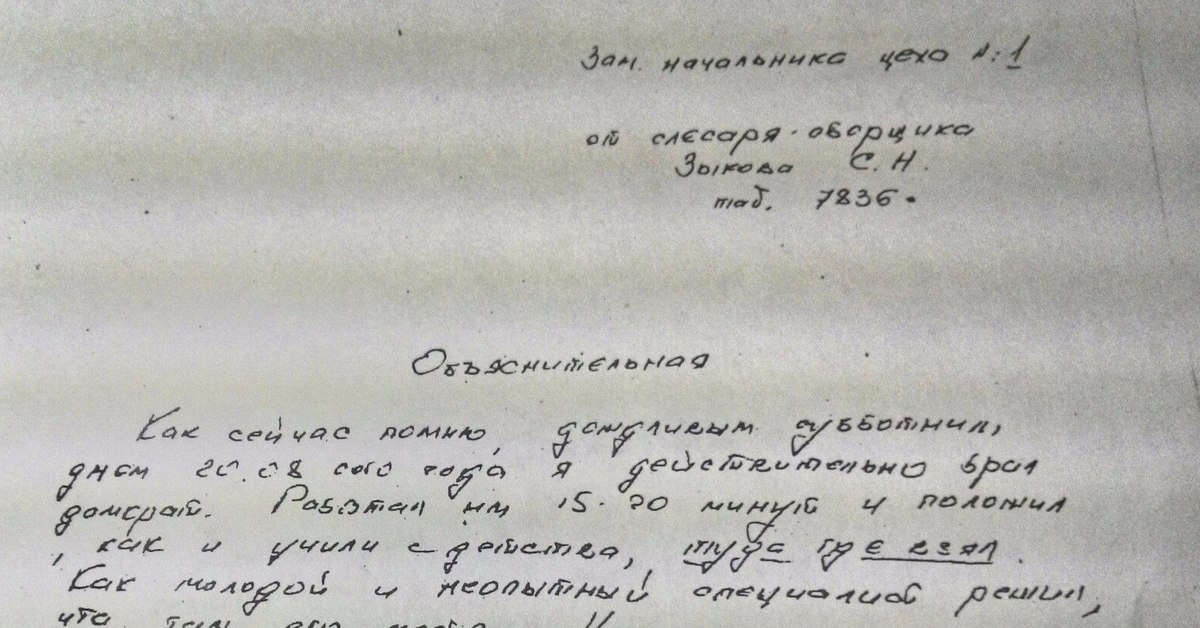 Зам. начальника цеха №: 1
от слесаря-сборщика
Зыкова С.Н.
таб. 7836.
Объяснительная
Как сейчас помню, дождливым субботним,
днем 20.08 сего года я действительно брал
домкрат. Работал им 15-20 минут и положил
, как и учили с детства, туда где взял.
Как молодой и неопытный специалист решил,
что там его место